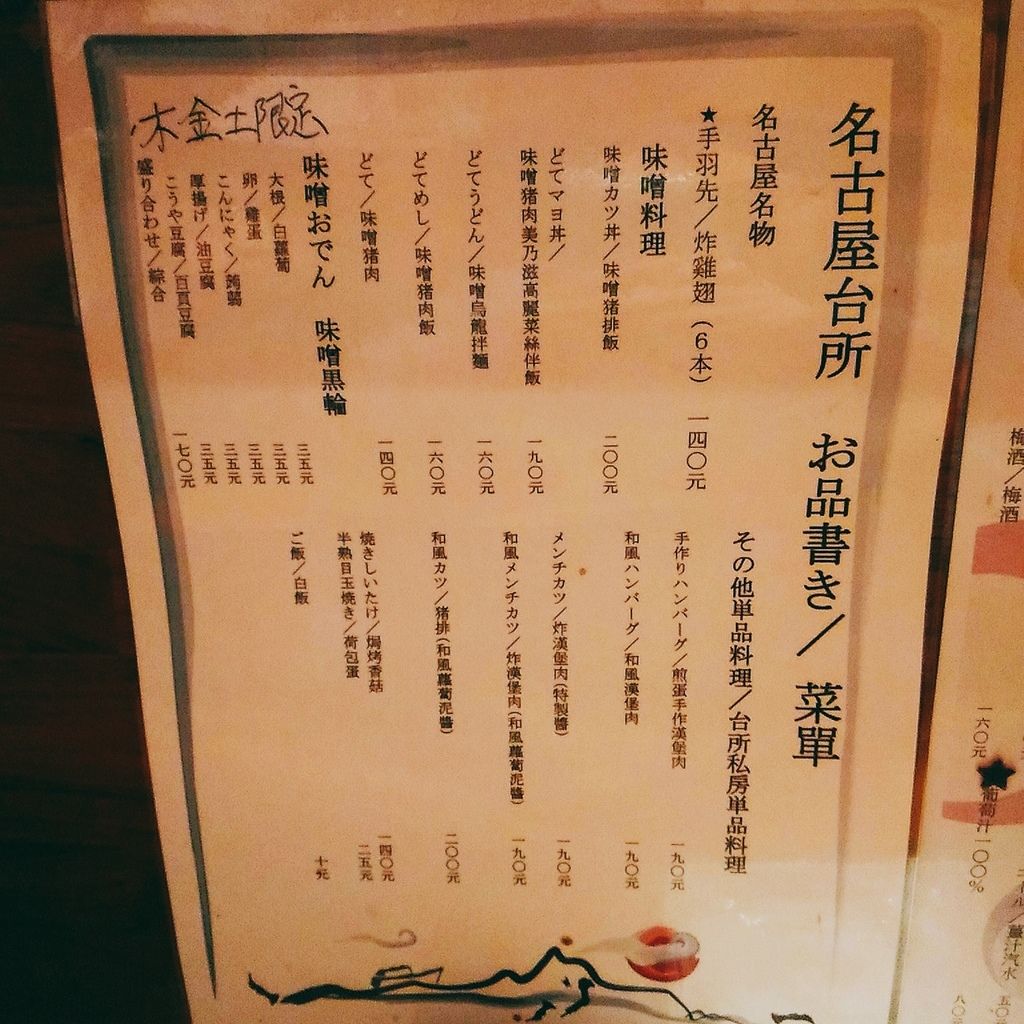 名古屋台所 お品書き／ 菜單
名古屋名物
★手羽先／炸雞翅（6本） 一四〇元
味噌料理
味噌カツ丼／味噌猪排飯 二〇〇元
どてマヨ丼／
味噌猪肉美乃滋高麗菜絲伴飯 一九〇元
どてうどん／味噌烏龍拌麵 一六〇元
どてめし／味噌猪肉飯 一六〇元
どて／味噌猪肉 一四〇元
味噌おでん 味噌黒輪
木金土限定
大根／白蘿蔔 三五元
卵／雞蛋 三五元
こんにゃく／蒟蒻 三五元
厚揚げ／油豆腐 三五元
こうや豆腐／百頁豆腐 三五元
盛り合わせ／綜合 一七〇元
その他単品料理／台所私房単品料理
手作りハンバーグ／煎蛋手作漢堡肉 一九〇元
和風ハンバーグ／和風漢堡肉 一九〇元
メンチカツ／炸漢堡肉（特製醬） 一九〇元
和風メンチカツ／炸漢堡肉（和風蘿蔔泥醬） 一九〇元
和風カツ／猪排（和風蘿蔔泥醬） 二〇〇元
焼きしいたけ／焗烤香菇 一四〇元
半熟目玉焼き／荷包蛋 二五元
ご飯／白飯 十元
梅酒／梅酒
一六〇元
葡萄汁一〇〇%
／薑汁汽水
八〇
五〇